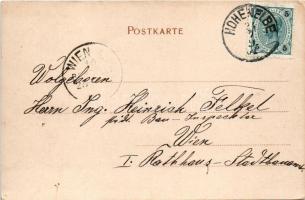 POSTKARTE
HOHENELBE
WIEN
5
Wolgeboren
Herrn Ing. Heinrich Felkel
städt. Bau-Inspector
Wien
I. Rathhaus-Stadtbauamt